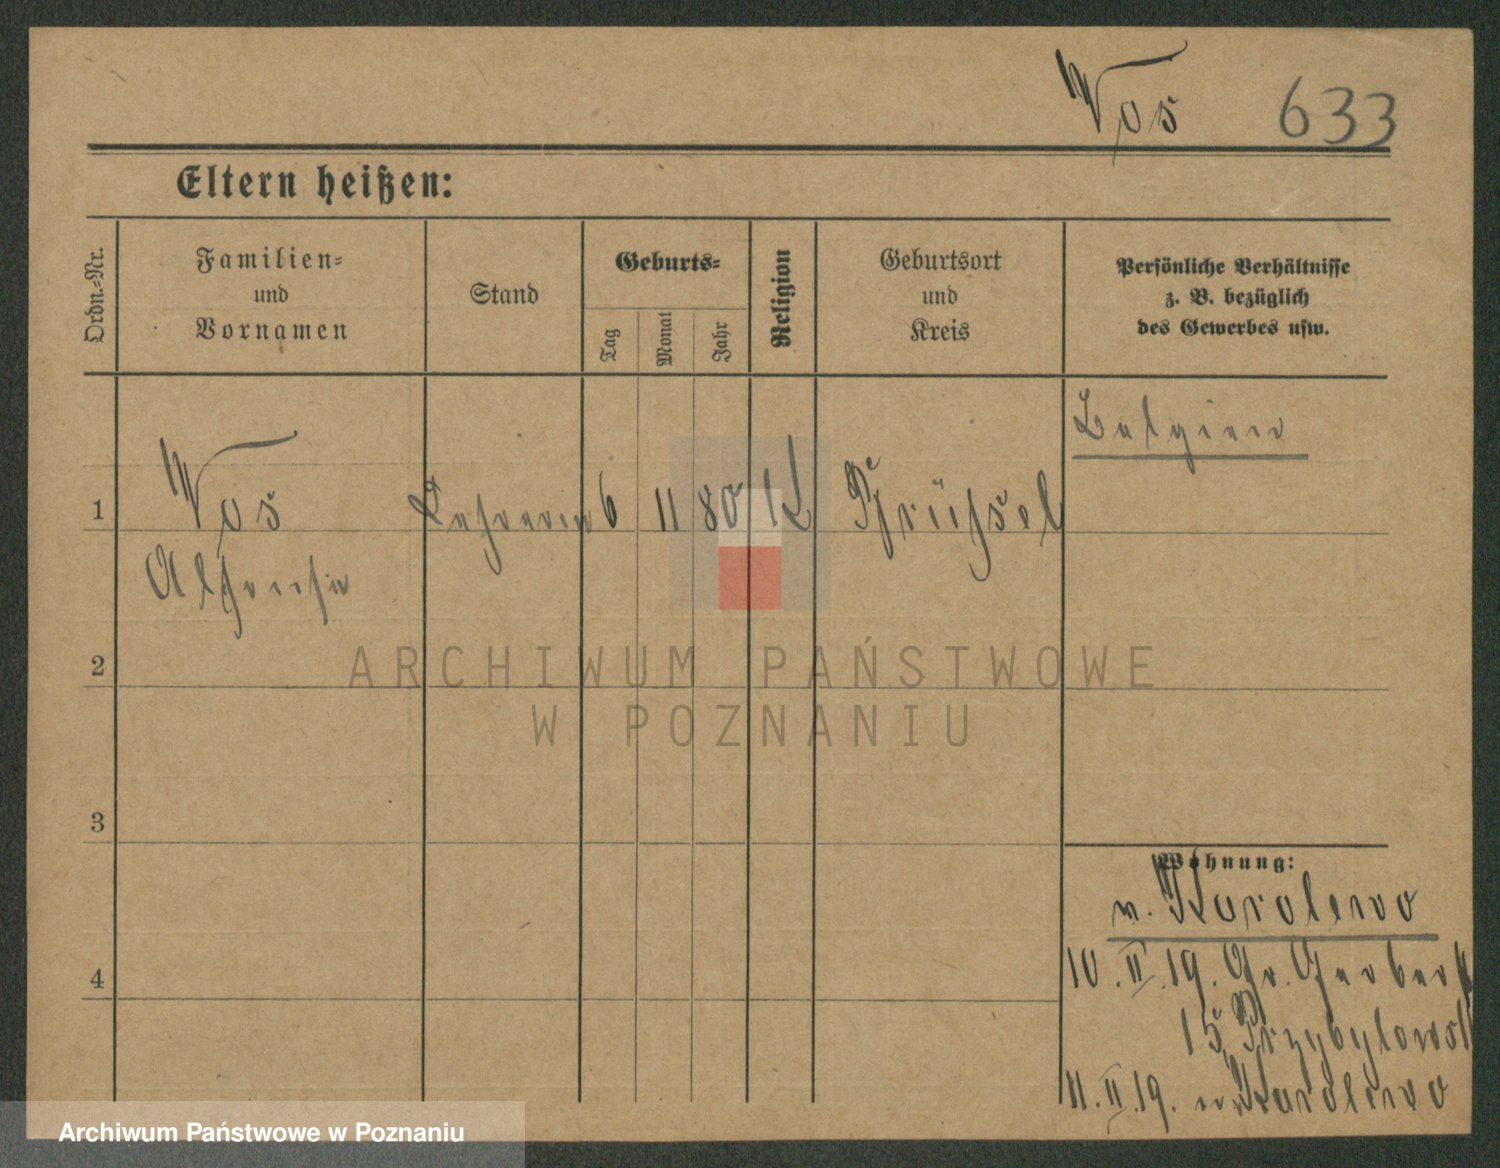 Vos 633
Eltern heißen:
Ordn.-Nr.
Familien-
und
Vornamen
Stand
Geburts-
Tag
Monat
Jahr
Religion
Geburtsort
und
Kreis
Persönliche Verhältnisse
z. B. bezüglich
des Gewerbes usw.
Belgien
1 Vos Lehrerin 6 11 80 K Brüssel
2
3
4
Wohnung:
v. Karolewo
10. II. 19. Gr. Gerberst
15, Przybylowsk
11. II. 19. Karolewo
ARCHIWUM PAŃSTWOWE
W POZNANIU
Archiwum Państwowe w Poznaniu